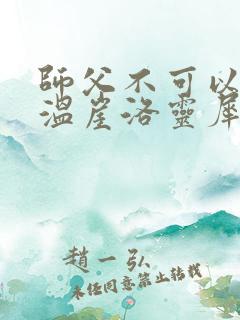 師父不可以
溫崖洛靈犀
趙一弘
未經同意禁止轉載